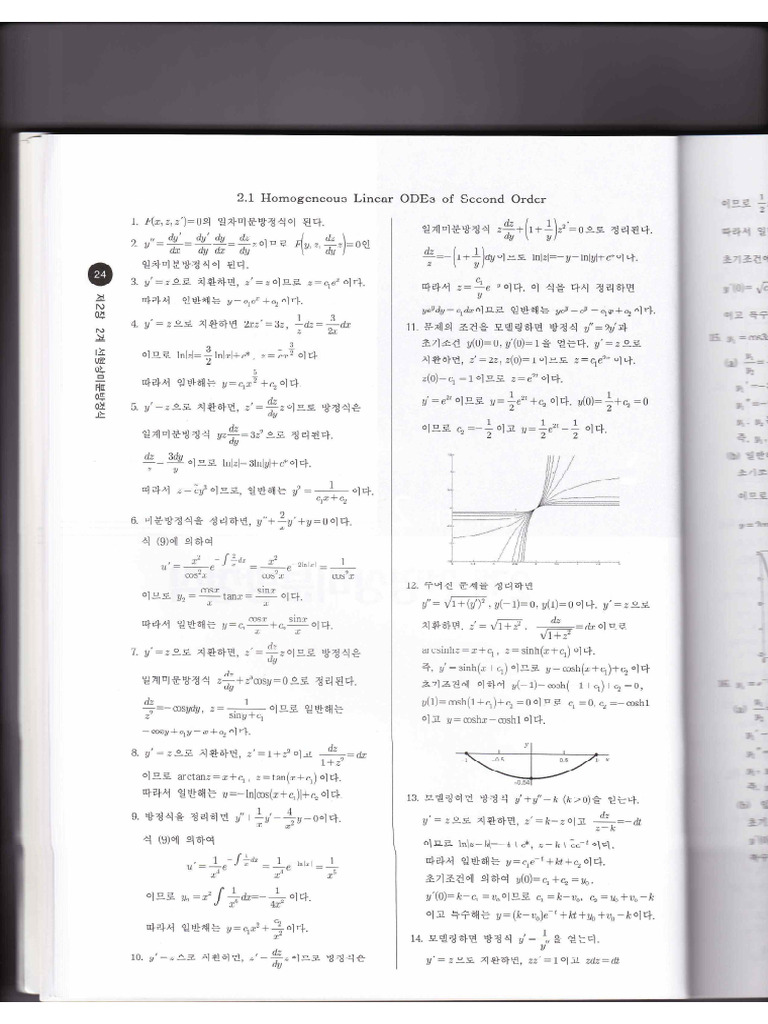 2.1 Homogeneous Linear ODEs of Second Order
24
제2장 2계 선형상미분방정식
1. F(x, z, z′)=0의 일차미분방정식이 된다.
2. y″= dy′/dx = dy′/dy dy/dx = dz/dy z 이므로 F(y, z, dz/dy z)=0인
일차미분방정식이 된다.
3. y′=z으로 치환하면, z′=z이므로 z=c₁eˣ 이다.
따라서 일반해는 y=c₁eˣ+c₂ 이다.
4. y′=z으로 치환하면 2xz′=3z, 1/z dz = 3/2x dx
이므로 ln|z|= 3/2 ln|x|+c*, z= x^(3/2) 이다
따라서 일반해는 y=c₁x^(5/2)+c₂ 이다.
5. y′=z으로 치환하면, z′= dz/dy z이므로 방정식은
일계미분방정식 yz dz/dy =3z² 으로 정리된다.
dz/z = 3dy/y 이므로 ln|z|=3ln|y|+c*이다.
따라서 z=c̃y³ 이므로, 일반해는 y²= 1/(c₁x+c₂) 이다.
6. 미분방정식을 정리하면, y″+ 2/x y′+y=0이다.
식 (9)에 의하여
u′= x²/cos²x e^(-∫ 2/x dx) = x²/cos²x e^(-2ln|x|) = 1/cos²x
이므로 y₂= cosx/x tanx= sinx/x 이다.
따라서 일반해는 y=c₁ cosx/x +c₂ sinx/x 이다.
7. y′=z으로 치환하면, z′= dz/dy z이므로 방정식은
일계미분방정식 z dz/dy +z³cosy=0으로 정리된다.
dz/z² =-cosydy, z= 1/(siny+c₁) 이므로 일반해는
-cosy+c₁y=x+c₂ 이다.
8. y′=z으로 치환하면, z′=1+z² 이고 dz/(1+z²) =dx
이므로 arctanz=x+c₁, z=tan(x+c₁) 이다.
따라서 일반해는 y=-ln|cos(x+c₁)|+c₂ 이다.
9. 방정식을 정리하면 y″+ 1/x y′- 4/x² y=0이다.
식 (9)에 의하여
u′= 1/x⁴ e^(-∫ 1/x dx) = 1/x⁴ e^(-ln|x|) = 1/x⁵
이므로 y₂=x² ∫ 1/x⁵ dx=- 1/4x² 이다.
따라서 일반해는 y=c₁x²+ c₂/x² 이다.
10. y′=z으로 치환하면, z′= dz/dy z이므로 방정식은
일계미분방정식 z dz/dy +(1+ 1/y)z²=0으로 정리된다.
dz/z =-(1+ 1/y)dy 이므로 ln|z|=-y-ln|y|+c*이다.
따라서 z= c₁/y e^(-y) 이다. 이 식을 다시 정리하면
yeʸdy=c₁dx이므로 일반해는 yeʸ-eʸ=c₁x+c₂ 이다.
11. 문제의 조건을 모델링하면 방정식 y″=2y′과
초기조건 y(0)=0, y′(0)=1을 얻는다. y′=z으로
치환하면, z′=2z, z(0)=1이므로 z=c₁e²ˣ 이다.
z(0)=c₁=1이므로 z=e²ˣ 이다.
y′=e²ˣ 이므로 y= 1/2 e²ˣ+c₂ 이다. y(0)= 1/2 +c₂=0
이므로 c₂=- 1/2 이고 y= 1/2 e²ˣ- 1/2 이다.
12. 주어진 문제를 정리하면
y″=√(1+(y′)²), y(-1)=0, y(1)=0이다. y′=z으로
치환하면, z′=√(1+z²), dz/√(1+z²) =dx이므로
arcsinhz=x+c₁, z=sinh(x+c₁) 이다.
즉, y′=sinh(x+c₁) 이므로 y=cosh(x+c₁)+c₂ 이다
초기조건에 의하여 y(-1)=cosh(-1+c₁)+c₂=0,
y(1)=cosh(1+c₁)+c₂=0이므로 c₁=0, c₂=-cosh1
이고 y=coshx-cosh1 이다.
y
-1 -0.5 0.5 1 x
-0.543
13. 모델링하면 방정식 y′+y″=k (k>0)을 얻는다.
y′=z으로 치환하면, z′=k-z이고 dz/(z-k) =-dt
이므로 ln|z-k|=-t+c*, z=k+c̃e⁻ᵗ 이다.
따라서 일반해는 y=c₁e⁻ᵗ+kt+c₂ 이다.
초기조건에 의하여 y(0)=c₁+c₂=y₀,
y′(0)=k-c₁=v₀이므로 c₁=k-v₀, c₂=y₀+v₀-k
이고 특수해는 y=(k-v₀)e⁻ᵗ+kt+y₀+v₀-k이다.
14. 모델링하면 방정식 y′= 1/y″ 을 얻는다.
y′=z으로 치환하면, zz′=1이고 zdz=dt